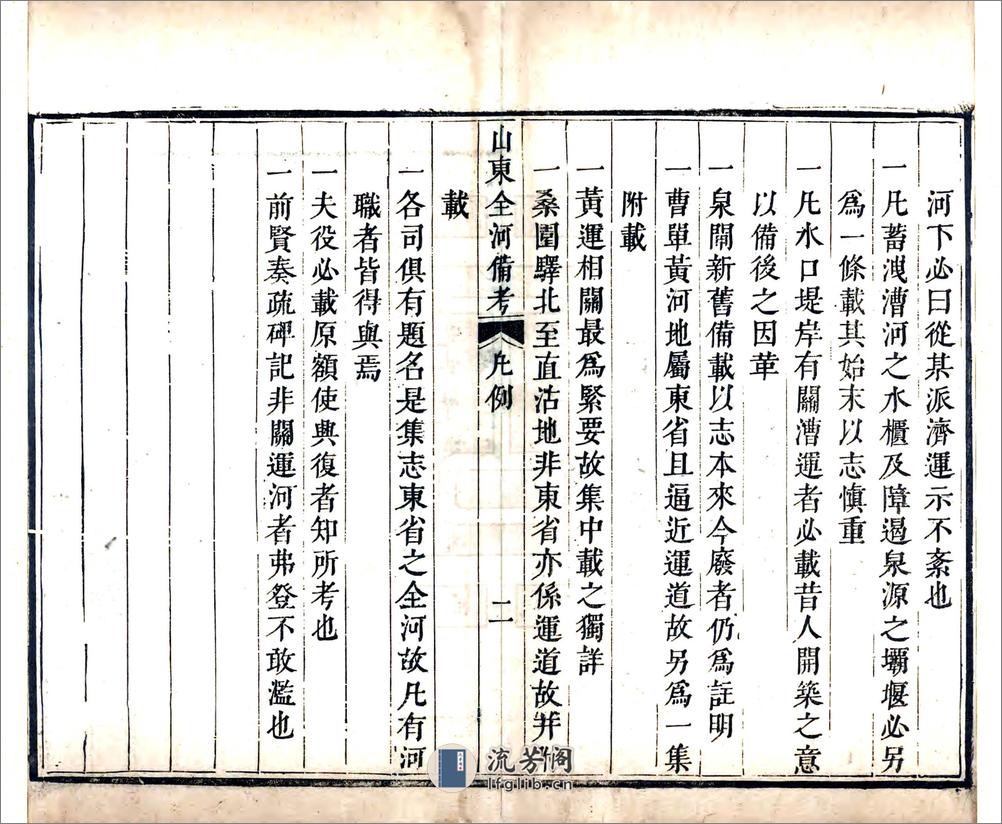 河下必曰從某派濟運示不紊也
一凡蓄洩漕河之水櫃及障遏泉源之壩堰必另
爲一條載其始末以志慎重
一凡水口堤岸有關漕運者必載昔人開築之意
以備後之因革
一泉閘新舊備載以志本來今廢者仍爲註明
一曹單黃河地屬東省且逼近運道故另爲一集
附載
一黃運相關最爲緊要故集中載之獨詳
一桑園驛北至直沽地非東省亦係運道故並
山東全河備考 凡例 二
載
一各司俱有題名是集志東省之全河故凡有河
職者皆得與焉
一夫役必載原額使興復者知所考也
一前賢奏疏碑記非關運河者弗登不敢濫也
流芳閣
lfglib.cn